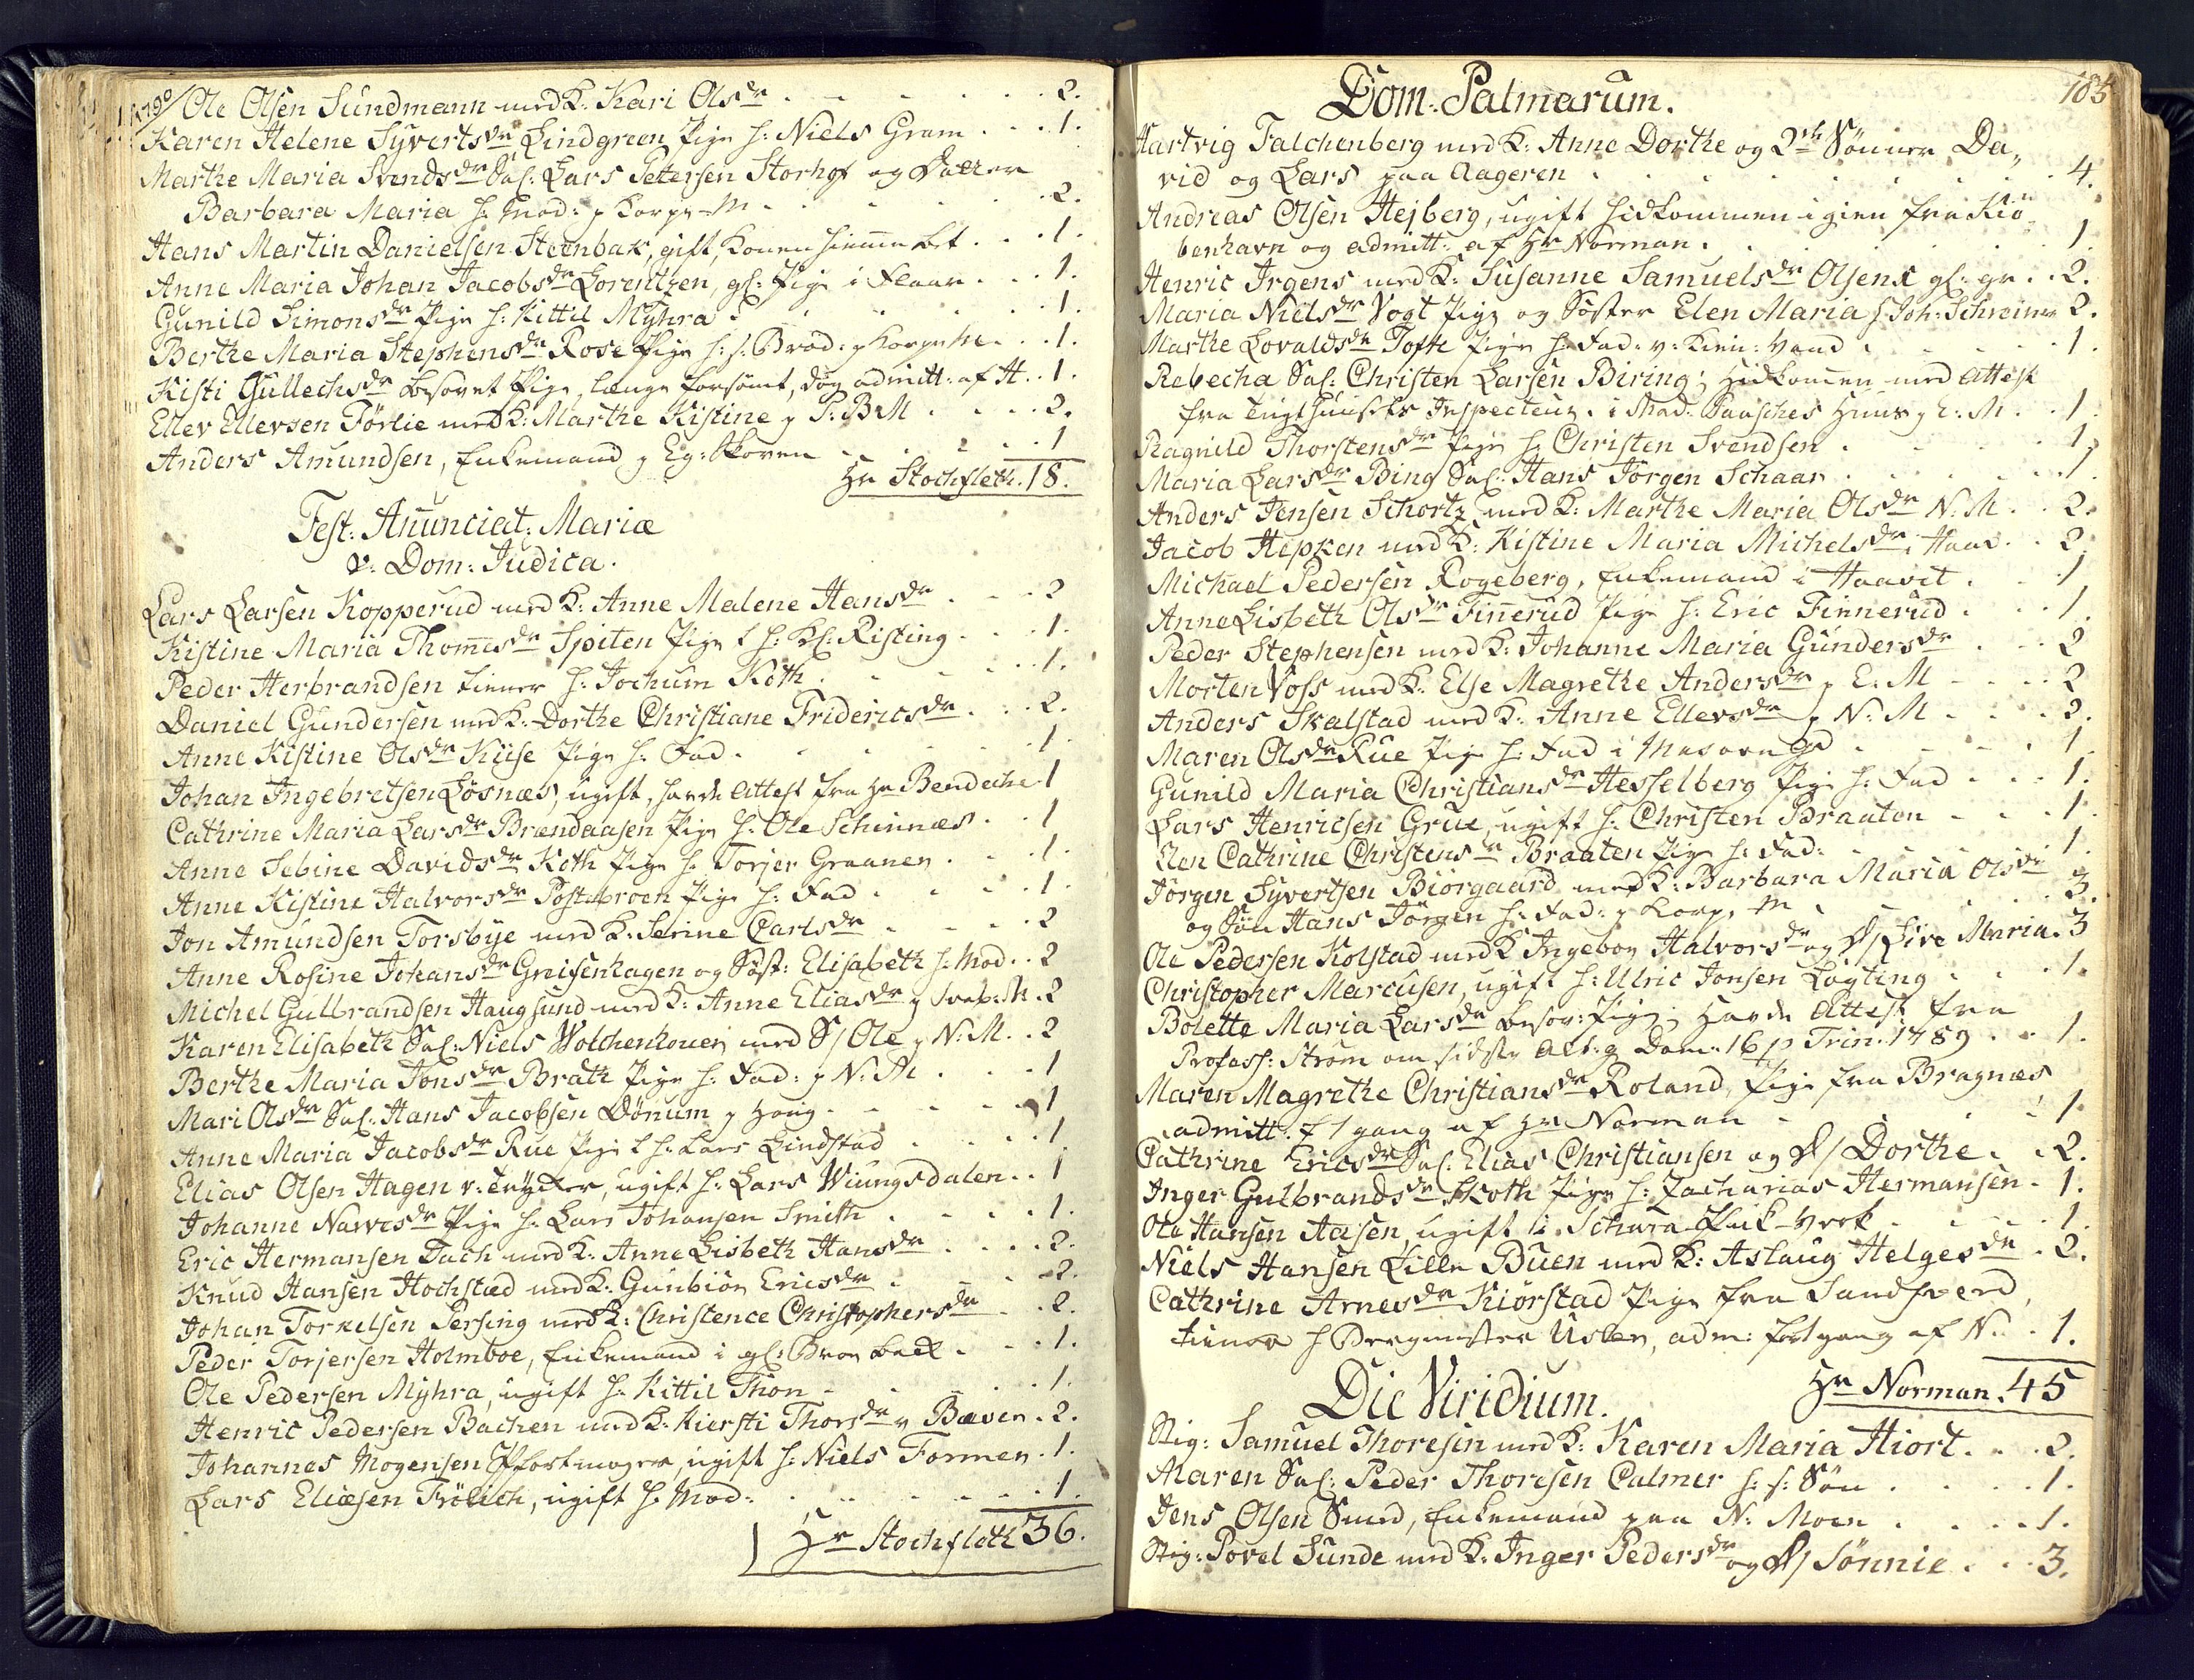 1790/ Ole Olsen Sundmann med K: Kari Olsdr . . . 2.
Karen Helene Syvertsdr Lindgreen Pige h: Niels Gram . . . 1.
Marthe Maria Svendsdr Sal: Lars Pettersen Storhof og Datter
Barbara Maria h: Mod: p Korps-M . . . 2.
Hans Martin Danielsen Steenbak, gift, Konen hiemme bet . . . 1.
Anne Maria Johan Jacobsdr Lorentzen, gl: Pige i Flaar . . . 1.
Gunild Simonsdr Pige h: Kittil Myhra . . . 1.
Berthe Maria Stephensdr Rose Pige h: s: Brod: p Korps M . . . 1.
Kisti Gullechsdr besovet Pige, længe forsömt, dog admitt: af H . . 1.
Ellev Ellevsen Förlie med K: Marthe Kistine p P: B M . . . 2.
Anders Amundsen, Enkemand p Eg: Skoven . . . 1
Hr Stochfleth. 18.
Fest: Anunciat: Mariæ
v: Dom: Judica.
Lars Larsen Kopperud med K: Anne Malene Hansdr . . . 2
Kistine Maria Thomesdr Spiten Pige t h: Kl: Risting . . . 1.
Peder Herbrandsen tiener h: Jochum Koth . . . 1.
Daniel Gundersen med K: Dorthe Christiane Fridericsdr . . . 2.
Anne Kistine Olsdr Kiise Pige h: Fad . . . 1
Johan Ingebretsen Losnæs, ugift, havde Attest fra Hr Bendeche 1
Cathrine Maria Larsdr Brændaasen Pige h: Ole Schinnæs . . 1
Anne Sebine Davidsdr Koth Pige h: Torjer Graanen . . . 1.
Anne Kistine Halvorsdr Postebroen Pige h: Fad . . . 1.
Jon Amundsen Torsbye med K: Serine Carlsdr . . . 2
Anne Rosine Johansdr Greisenhagen og Søst: Elisabeth h: Mod . . 2
Michel Gulbrandsen Haugsund med K: Anne Eliasdr p Svap: M . 2
Karen Elisabeth Sal: Niels Wolchenhouer med S/ Ole p N: M . . 2
Berthe Maria Jonsdr Brath Pige h: Fad: p N: M . . . 1
Mari Olsdr Sal: Hans Jacobsen Dönum p Houg . . . 1
Anne Maria Jacobsdr Rue Pige t h: Lars Lindstad . . . 1
Elias Olsen Hagen v: Trycker, ugift h: Lars Wiungsdalen . . 1
Johanne Narvesdr Pige h: Lars Johansen Smith . . . 1.
Eric Hermansen Tuch med K: Anne Lisbeth Hansdr . . . 2.
Knud Hansen Hochstad med K: Gunbiör Ericsdr . . . 2.
Johan Torkelsen Persing med K: Christence Christophersdr . . 2.
Peder Torjersen Holmboe, Enkemand i gl: Broebak . . . 1.
Ole Pedersen Myhra, ugift h: Kittil Thon . . . 1.
Henric Pedersen Bachen med K: Kiersti Thorsdr v Bæver . 2.
Johannes Mogensen Pfortmager, ugift h: Niels Formen . 1.
Lars Eliæsen Frölich, ugift h: Mod: . . . 1.
Hr Stochfleth 36.
185
Dom: Palmarum.
Hartvig Falchenberg med K: Anne Dorthe og 2de Sönner Da„
vid og Lars paa Aageren . . . 4.
Andreas Olsen Hejberg, ugift hidkommen igien fra Kiö
benhavn og admitt: af Hr Norman . . . 1
Henric Irgens med K: Susanne Samuelsdr Olsens gl: gr. . 2.
Maria Nielsdr Vogt Pige og Söster Elen Maria h Joh: Schreiner 2.
Marthe Lovaldsdr Tofte Pige h: Fad: v: Kien: Vand . . . 1.
Rebecha Sal: Christen Larsen Biring; hidkomen med Attest
fra Tugthuusets Inspecteur. i Mad: Paasches Huus p E: M . . 1.
Ragnild Thorstensdr Pige h: Christen Svendsen . . . 1.
Maria Larsdr Bing Sal: Hans Jörgen Schaar . . . 1.
Anders Jensen Schortz med K: Marthe Maria Olsdr N: M . . 2.
Jacob Hepken med K: Kistine Maria Michelsdr i Haav . . 2.
Michael Pedersen Rogeberg, Enkemand i Haavet . . . 1
Anne Lisbeth Olsdr Finnerud Pige h: Eric Finnerud . . . 1.
Peder Stephensen med K: Johanne Maria Gundersdr . . . 2
Morten Voss med K: Else Magrethe Andersdr p E: M . . . 2
Anders Skalstad med K: Anne Ellevsdr p N: M . . . 2.
Maren Olsdr Rue Pige h: Fad i . . . 1.
Gunild Maria Christiansdr Hesselberg Pige h: Fad . . . 1.
Lars Henricsen Grue, ugift h: Christen Braaten . . . 1.
Elen Cathrine Christensdr Braaten Pige h: Fad: . . . 1.
Jörgen Syvertsen Biörgaard med K: Barbara Maria Olsdr
og Sön Hans Jörgen h: Fad: p Korps M . . . 3.
Ole Pedersen Kolstad med K Ingebor Halvorsdr og D/ Sive Maria . 3
Christopher Marcusen, ugift h: Ulric Jonsen Lögting . . . 1.
Bolette Maria Larsdr besov: Pige; havde Attest fra
Profess: Ström om sidste Alt: g Dom: 16 p Trin: 1789 . . 1.
Maren Magrethe Christiansdr Roland, Pige fra Bragnæs
admitt: f 1 gang af Hr Norman . . . 1.
Cathrine Ericsdr Sal: Elias Christiansen og D/ Dorthe . . 2.
Inger Gulbrandsdr Skoth Pige h: Zacharias Hermansen . 1.
Ole Hansen Aasen, ugift i Schara Puk-Verk . . . 1.
Niels Hansen Lille Buen med K: Aslaug Helgesdr . 2.
Cathrine Arnesdr Kiörstad Pige fra Sandsverd,
tiener h Bergmester Usler, adm: förstgang af N. . 1.
Hr Norman. 45
Die Viridium.
Stig: Samuel Thoresen med K: Karen Maria Hiort . . . 2.
Maren Sal: Peder Thoresen Calmer h: s: Sön . . . 1.
Jens Olsen Smed, Enkemand paa N: Moen . . . 1.
Stig: Povel Sunde med K: Inger Pedersdr og D/ Sönnie . . . 3.